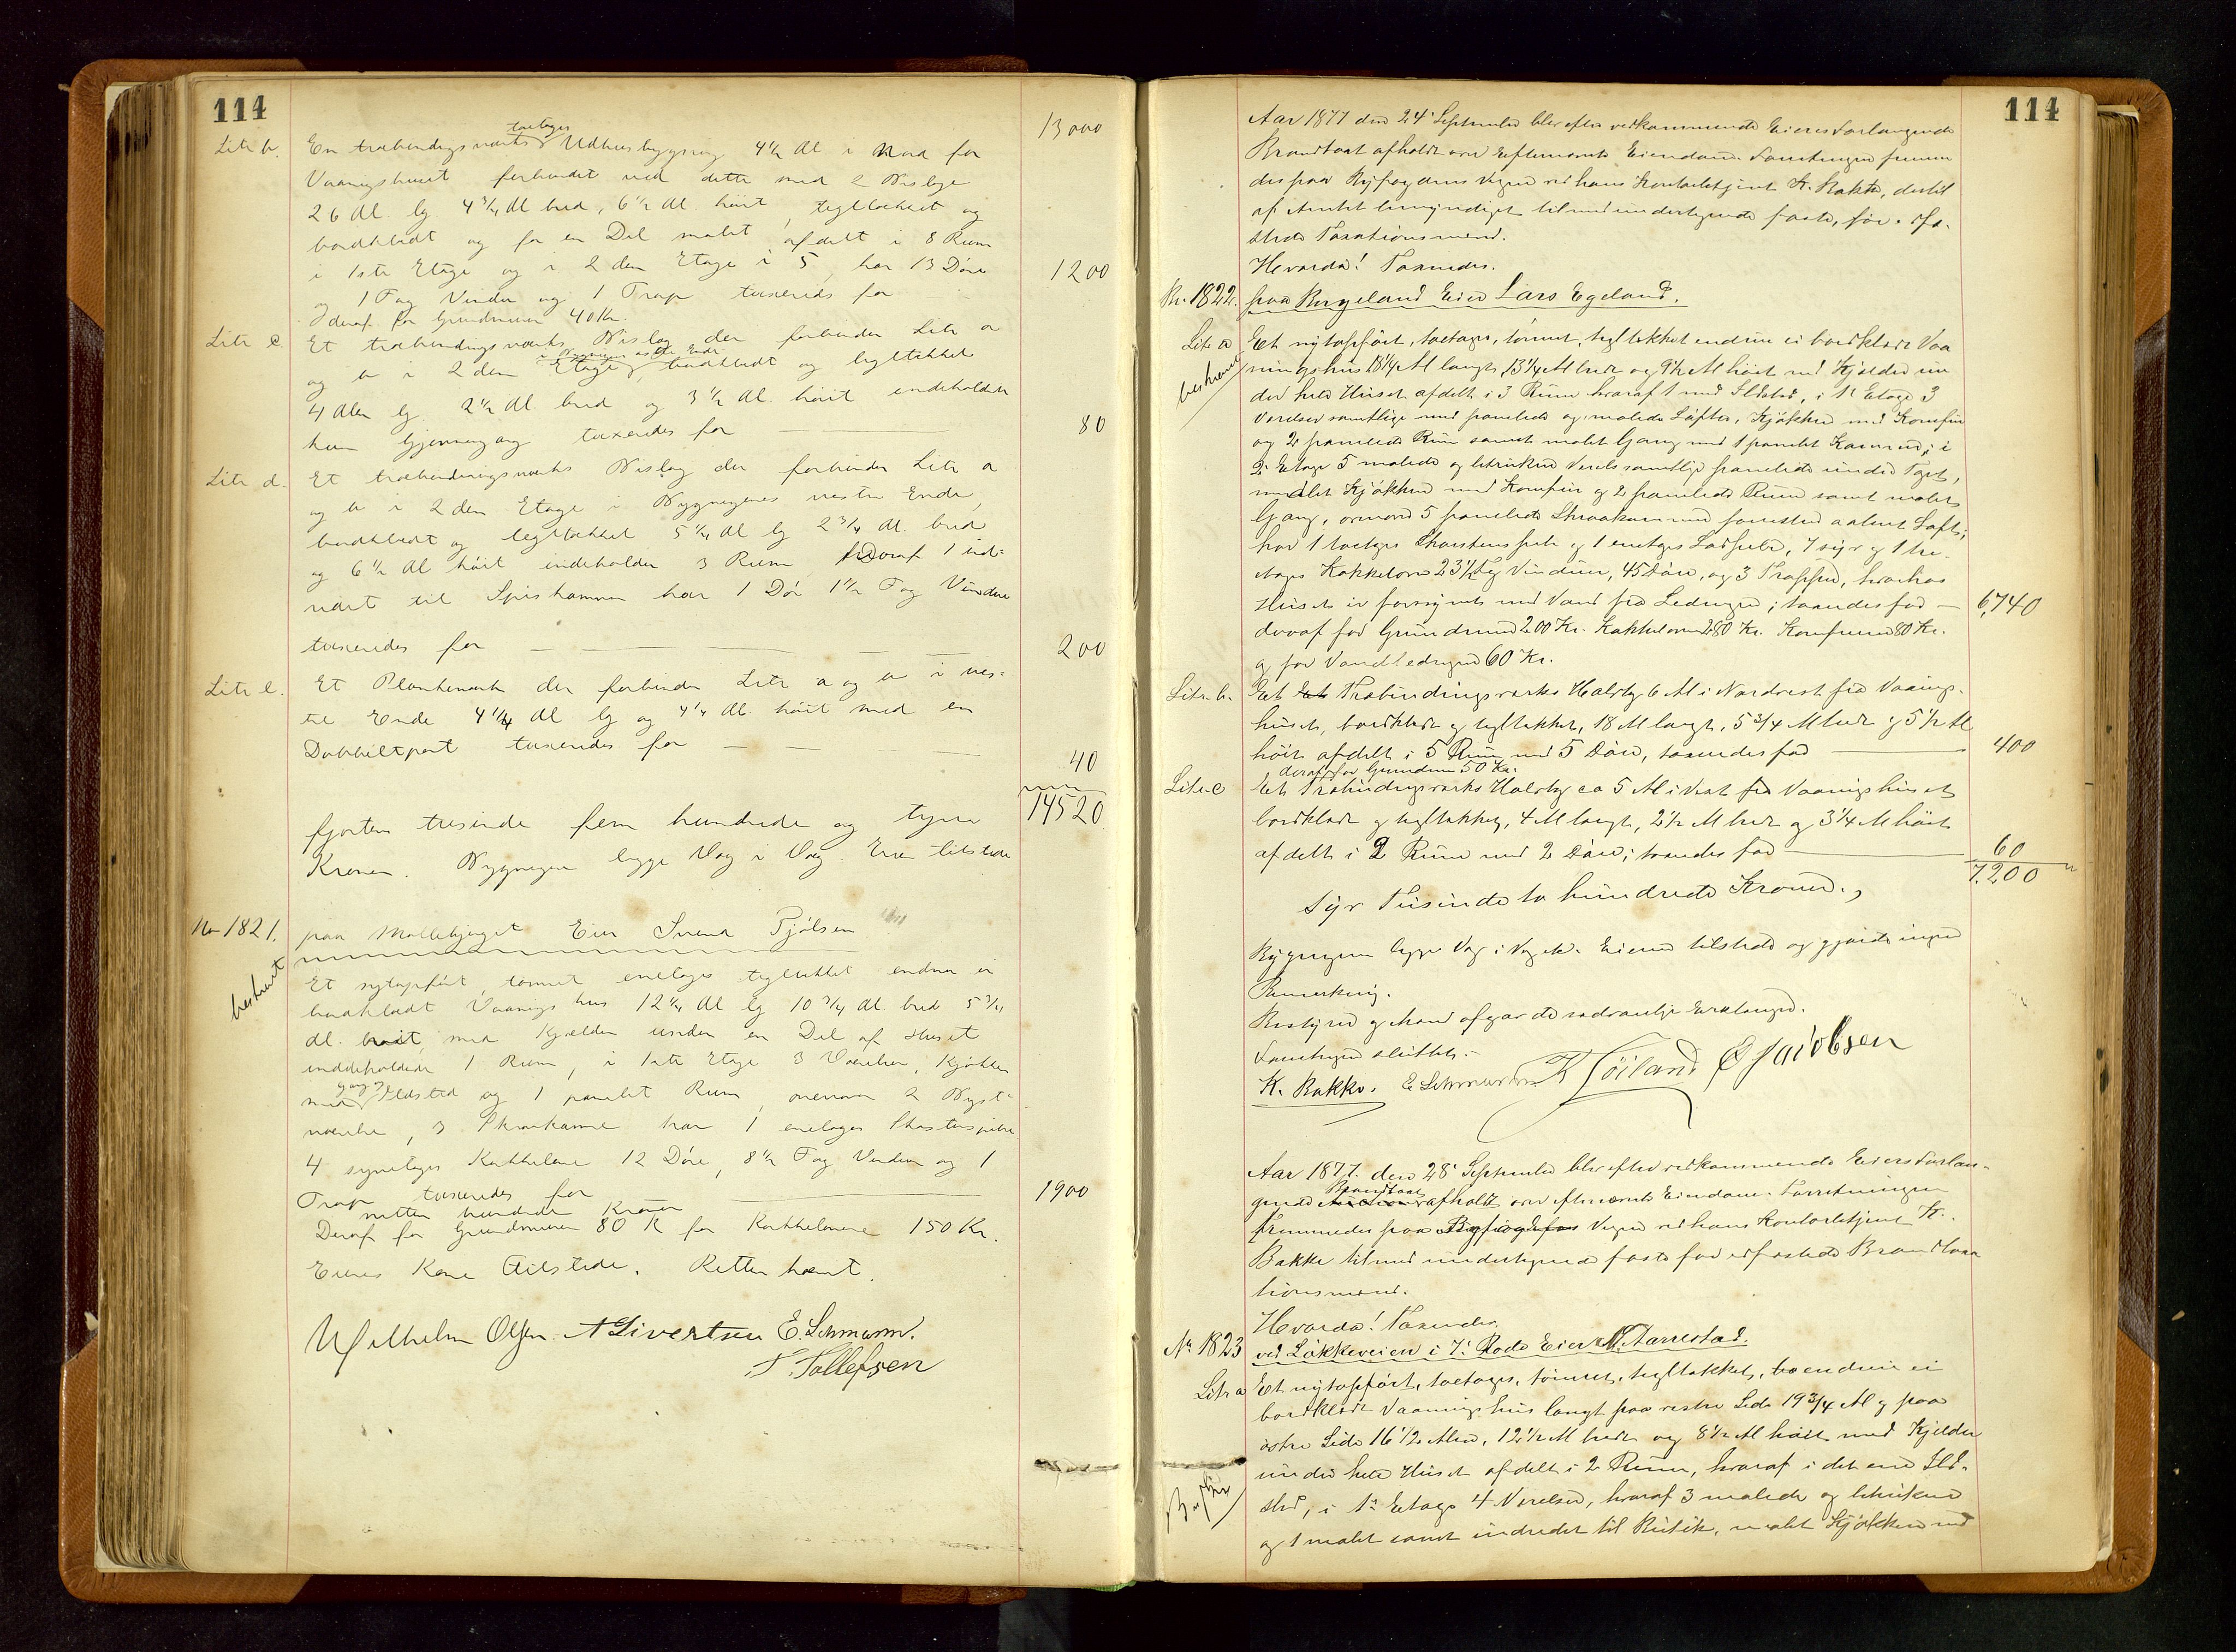 114
13000
Litr b. En træbindingsværks toetages Udhusbygning 4 1/2 Al i Nord for
Vaaningshuset forbundet med dette med 2 Bislage
26 Al lg 4 3/4 Al bred, 6 1/2 Al høit, tegltækket og
bordklædt og for en Del malet, afdelt i 8 Rum
i 1ste Etage og i 2den Etage i 5, har 13 Døre 1200
og 1 Fag Vindu og 1 Trap taxeredes for
deraf for Grundmuren 40 Kr.
Litr c. Et træbindingsværks Bislag der forbinder Litr a
og b i 2den Etage i Bygningens østre Ende, bordklædt og tegltækket
4 Alen lg 2 1/2 Al bred og 3 1/2 Al høit indeholder
kun Gjennemgang taxeredes for 80
Litr d. Et træbindingsværks Bislag der forbinder Litr a
og b i 2den Etage i Bygningens vestre Ende,
bordklædt og tegltækket 5 1/4 Al lg 2 3/4 Al bred
og 6 1/2 Al høit indeholder 3 Rum hvoraf 1 ind=
rødt til Spiskammer har 1 Dør 1 1/2 Fag Vinduer
taxeredes for 200
Litr e. Et Plankeværk der forbinder Litr a og b i ves=
tre Ende 4 1/4 Al lg og 4 1/4 Al høit med en
Dobbeltport taxeredes for 40
14520
fjorten tusinde fem hundrede og tyve
Kroner. Bygningen ligger Væg i Væg. Eieren tilstede
No 1821. paa Møllebjerget Eier Svend Tjølsen
bestrøet
Et nytopført, tømret enetages tegltækket endnu ei
bordklædt Vaaningshus 12 1/4 Al lg 10 3/4 Al bred 5 3/4
Al høit, med Kjælder under en Del af Huset
inddeholdende 1 Rum, i 1ste Etage 3 Værelser, Kjøkken
med Gang og Ildsted og 1 panelet Rum, ovenover 2 Kvist=
værelser, 3 Skraakamre har 1 enetages Skorstenspibe
4 syvetages Kakkelovne 12 Døre, 8 1/2 Fag Vinduer og 1
Trap taxeredes for 1900
nitten hundrede Kroner
Deraf for Grundmuren 80 K for Kakkelovnene 150 Kr.
Eierens Kone tilstede. Retten hævet.
Wilhelm Olsen. A Sivertsen E. Lehmann.
T. Tollefsen
114
Aar 1877 den 24' September blev efter vedkommende Eieres Forlangende
Brandtaxt afholdt over Efternævnte Eiendom. Forretningen frem
des paa Byfogdens Vegne ved hans Kontorbetjent K. Bakke, dertil
af Amtet bemyndiget tilmed undertegnede faste, før edfæ-
stede Taxationsmænd.
Hvorda! Taxeredes.
No. 1822. paa Bergeland Eier Lars Egeland.
Litr a Et nytopført, toetages, tømret, tegltækket endnu ei bordklædt Vaa
bestrøet
ningshus 18 1/4 Al langt, 13 1/4 Al bredt og 9 1/2 Al høit med Kjelder un
der hele Huset afdelt i 3 Rum hvoraf 1 med Ildsted, i 1' Etage 3
Værelser samtlige med panelede og malede Lofter, Kjøkken med Komfur
og 2 panelede Rum samt malet Gang med 1 panelet Kammer; i
2' Etage 5 malede og betrukne Værelser samtlige panelede under Taget,
malet Kjøkken med Komfur og 2 panelede Rum samt malet
Gang, ovenover 5 panelede Skraakammer forresten aabent Loft;
har 1 toetages Skorstenspibe og 1 enetages Ladpibe, 7 syv og 1 tre-
etages Kakkelovne 23 1/2 Fag Vinduer, 45 Døre, og 3 Trapper, hvorhos
Huset er forsynet med Vand fra Ledningen; taxeredes for 6,740
deraf for Grundmuren 200 Kr. Kakkelovnene 280 Kr. Komfurene 80 Kr.
og for Vandledningen 60 Kr.
Litr. b. Et Træbindingsværks Halvtag 6 Al i Nordvest fra Vaanings-
huset, bordklædt og tegltækket, 18 Al langt, 5 3/4 Al bredt og 5 1/2 Al
høit afdelt i 5 Rum med 5 Døre, taxeredes for 400
deraf for Grundmur 50 Kr.
Litr. c Et Træbindingsværks Halvtag ca 5 Al i Vest fra Vaaningshuset
bordklædt og tegltækket, 4 Al langt, 2 1/2 Al bredt og 3 1/4 Al høit
afdelt i 2 Rum med 2 Døre; taxeredes for 60
7,200
Syv Tusinde to hundrede Kroner.
Bygningerne ligger Væg i Væg etc. Eieren tilstede og gjorde ingen
Bemærkning.
Bestyrer og Mænd afgav de sædvanlige Erklæringer.
Forretningen sluttet.
K. Bakke. E Lehmann K Høiland E Jacobsen
Aar 1877 den 28' September blev efter vedkommende Eiers Forlan-
gende Brandtaxt afholdt over efternævnte Eiendom. Forretningen
fremmedes paa Byfogdens Vegne ved hans Kontorbetjent K.
Bakke tilmed undertegnede faste før edfæstede Brandtaxa
tionsmænd.
Hvorda! Taxeredes.
No 1823 ved Løkkeveien i 7' Rode Eier M. Aarrestad.
Litr a Et nytopført, toetages, tømret, tegltækket, endnu ei
bordklædt Vaaningshus langt paa vestre Side 19 3/4 Al og paa
østre Side 16 1/2 Alen, 12 1/2 Al bredt og 8 1/2 Al høit med Kjelder
under hele Huset afdelt i 2 Rum, hvoraf i det ene Ild-
sted, i 1' Etage 4 Værelser, hvoraf 3 malede og betrukne
og 1 malet samt indredet til Butik, malet Kjøkken med